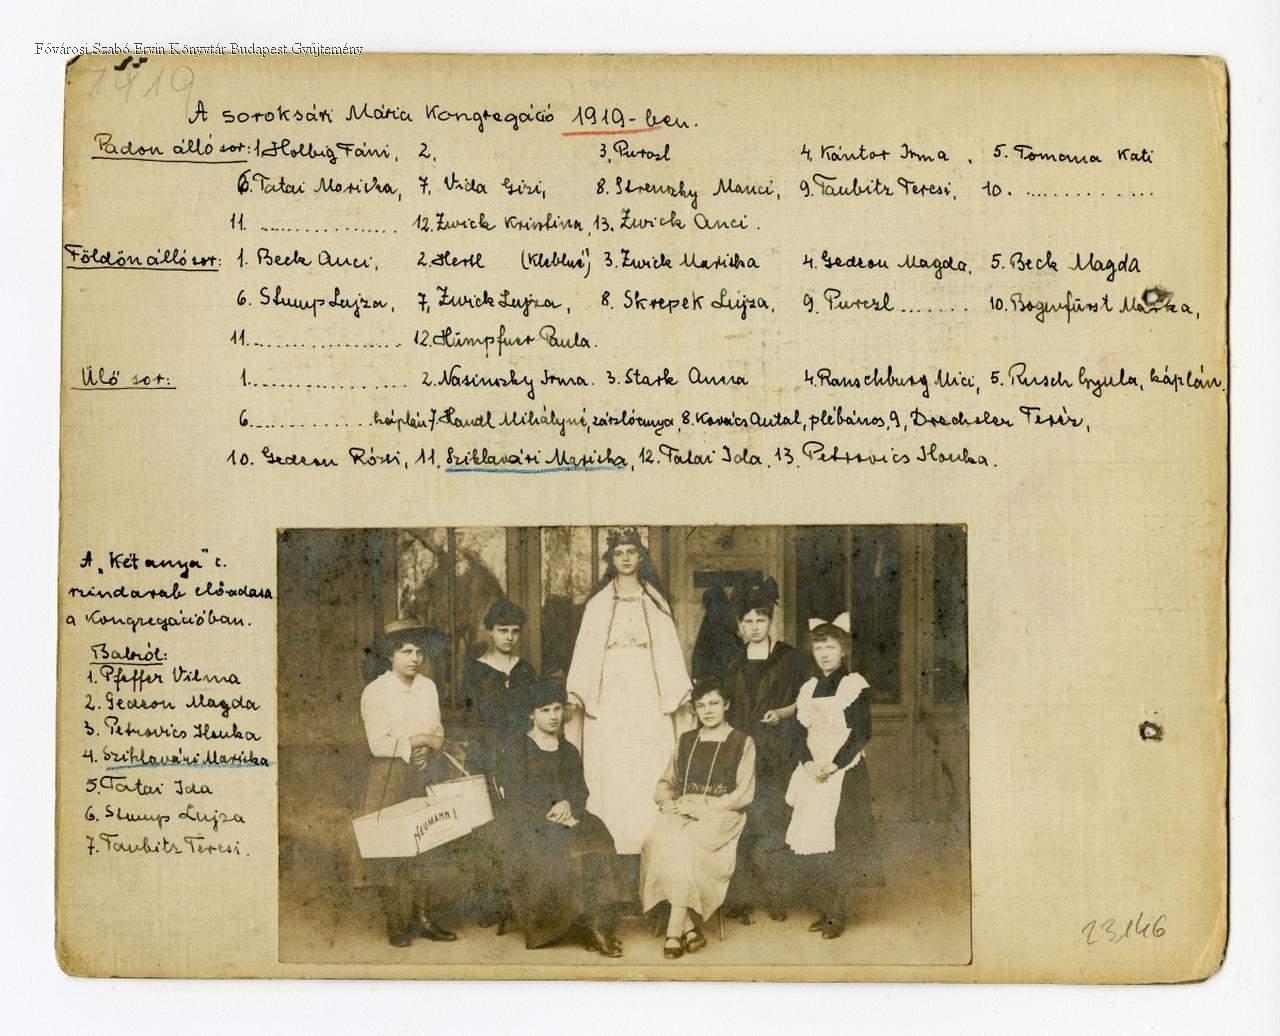 Fővárosi Szabó Ervin Könyvtár Budapest Gyűjtemény
1919
A soroksári Mária Kongregáció 1919-ben.
Padon álló sor: 1. Holbig Fáni, 2, 3, Purczl 4. Kántor Irma, 5. Tomana Kati
6. Tatai Mariska, 7, Vida Gizi, 8. Strenszky Manci, 9. Taubitz Tercsi, 10. ..............
11 ................ 12. Zwick Krisztina, 13. Zwick Anci.
Földön álló sor: 1. Beck Anci, 2. Hertl (Kleblné) 3. Zwick Mariska 4. Gedeon Magda, 5. Beck Magda
6. Stump Lujza, 7, Zwick Lujza, 8. Skrepek Lujza, 9. Purczl ....... 10. Bogenfürst Marika,
11. ................ 12. Hümpfner Paula.
Ülő sor: 1. ................ 2. Nasinszky Irma. 3. Stark Anna 4. Ranschburg Mici, 5. Rusch Gyula, káplán.
6. ............... káplán 7. Handl Mihályné, zászlóanya, 8. Kovács Antal, plébános, 9, Drechsler Teréz,
10. Gedeon Rózsi, 11. Sziklavári Mariska, 12. Tatai Ida. 13. Petrovics Ilonka.
A „Két anya" c.
szindarab előadása
a Kongregációban.
Balról:
1. Pfeffer Vilma
2. Gedeon Magda
3. Petrovics Ilonka
4. Sziklavári Mariska
5. Tatai Ida
6. Stump Lujza
7. Taubitz Tercsi.
NEUMANN I
23146